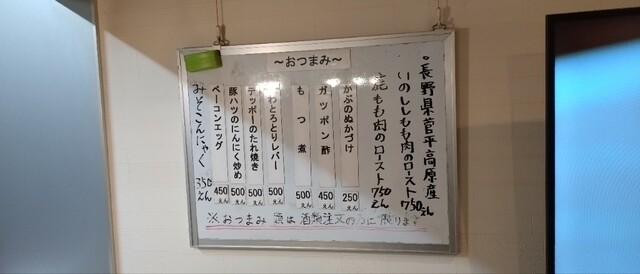 ～おつまみ～
○長野県菅平高原産
いのししもも肉のロースト750えん
鹿もも肉のロースト750えん
かぶのぬかづけ 250えん
ガツポン酢 450えん
もつ煮 500えん
わとろとりレバー 500えん
テッポーのたれ焼き 500えん
豚ハツのにんにく炒め 500えん
ベーコンエッグ 450えん
みそこんにゃく 350えん
※おつまみ類は酒類注文の方に限ります